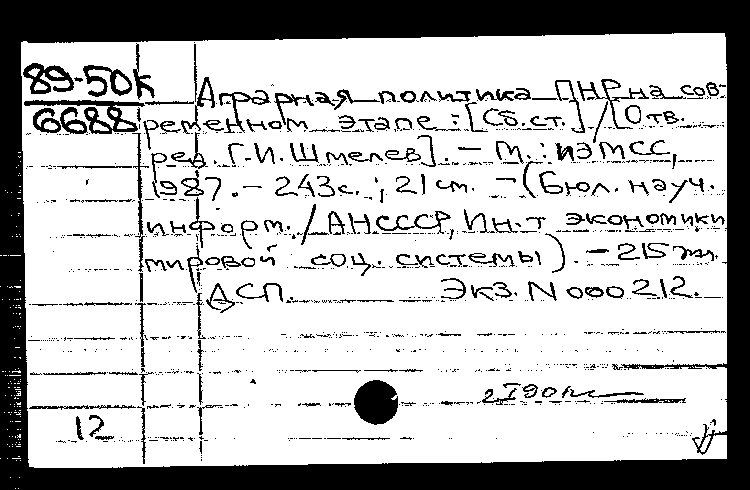 89-50к
6688
Аграрная политика ПНР на сов-
ременном этапе : [Сб.ст.] / [Отв.
ред. Г.И. Шмелев]. – М. : ИЭМСС,
1987. – 243с. ; 21 см. – (Бюл. науч.
информ. / АНСССР, Ин-т экономики
мировой соц. системы). – 215
ДСП. Экз. N 000212.
12